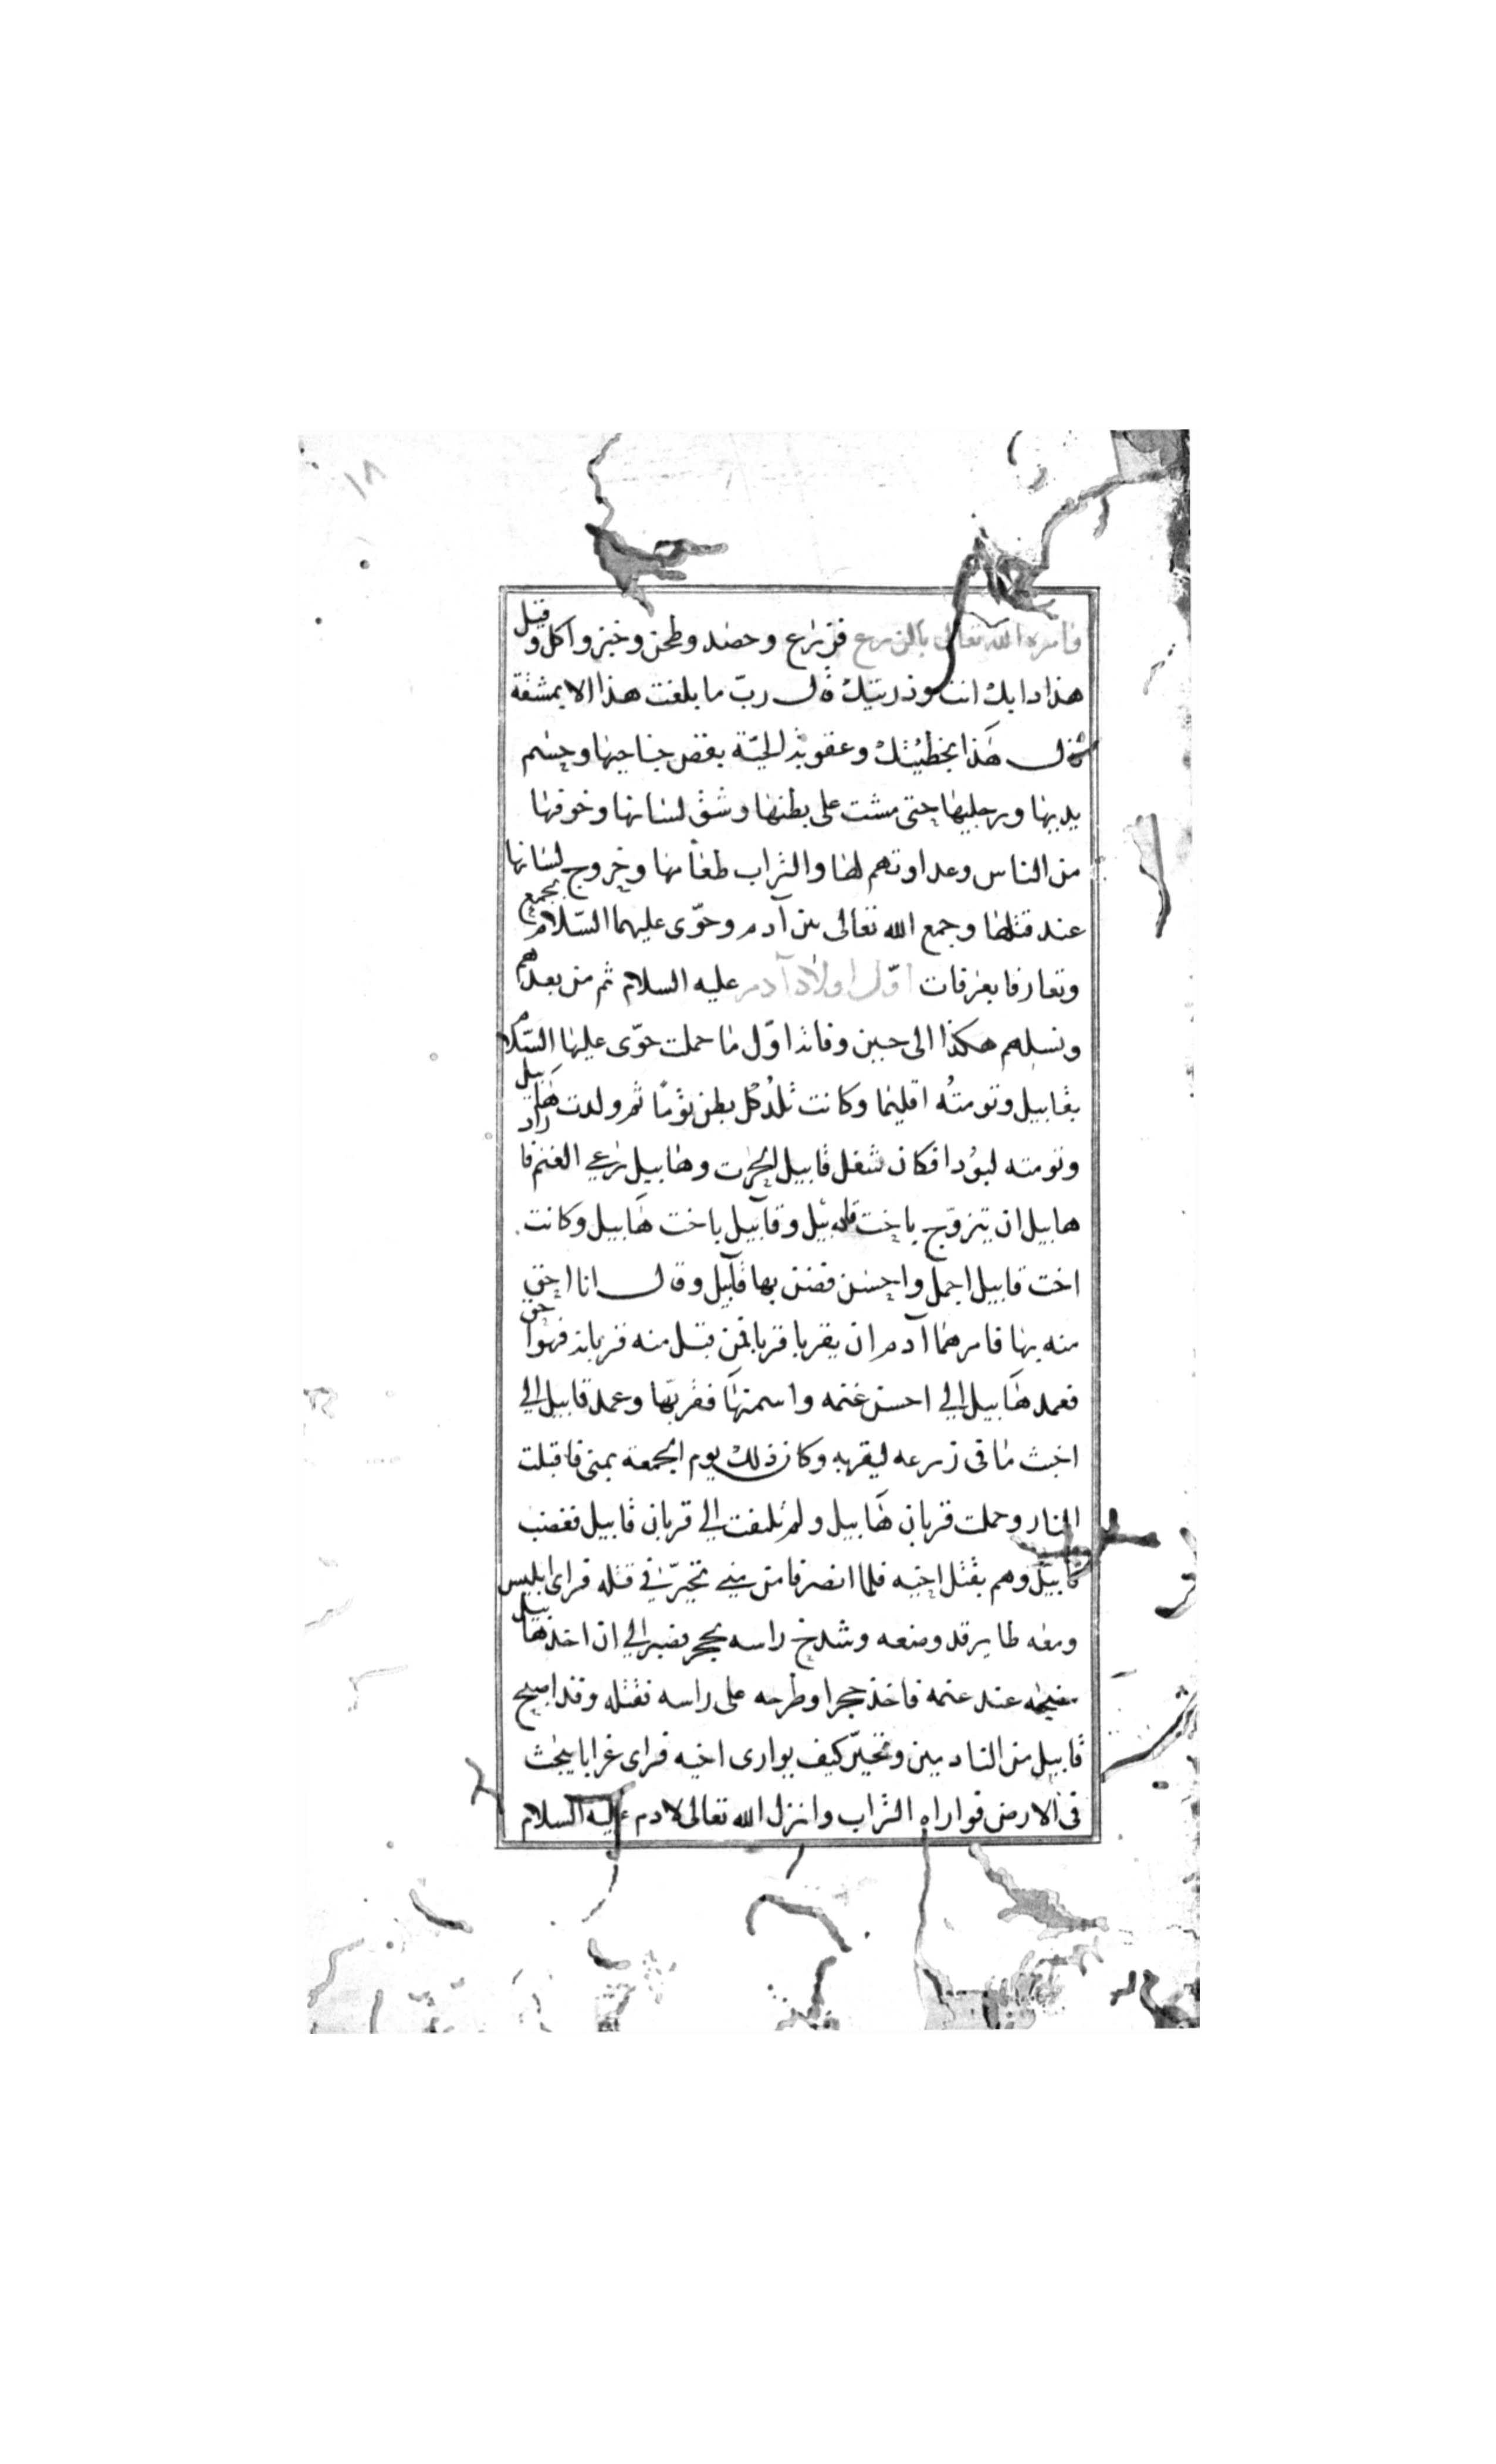 ١٨
فامره الله تعالى بالزرع فزرع وحصد وطحن وخبز واكل وقيل
هذا دابك انت وذريتك قال ربّ ما بلغت هذا الا بمشقة
قال هذا بخطيئتك وعقوبة الحيّة بقص جناحيها وحسم
يديها ورجليها حتى مشت على بطنها وشق لسانها وخوفها
من الناس وعداوتهم لها والتراب طعامها وخروج لسانها
عند قتلها وجمع الله تعالى بين آدم وحوّى عليهما السّلام بجمع
وتعارفا بعرفات اوّل اولاد آدم عليه السلام ثم من بعدهم
ونسلهم هكذا الى حين وفاته اوّل ما حملت حوّى عليها السّلام
بقابيل وتومته اقليما وكانت تلد كل بطن توما ثم ولدت هابيل
وتومته لبودا فكان شغل قابيل الحرث وهابيل يرعي الغنم فاراد
هابيل ان يتزوّج باخت قابيل وقابيل باخت هابيل وكانت
اخت قابيل اجمل واحسن فضن بها قابيل وقال انا احق
منه بها فامرهما آدم ان يقربا قربا فمن قبل منه قربانه فهو احق
فعمد هابيل الي احسن غنمه واسمنها فقربها وعمد قابيل الي
اخبث ما في زرعه ليقربه وكان ذلك يوم الجمعة بمنى فاقبلت
النار وحملت قربان هابيل ولم تلتفت الي قربان قابيل فغضب
قابيل وهم بقتل اخيه فلما انصرفا من منى تحيّر في قتله فراى ابليس
ومعه طاير قد وضعه وشدخ راسه بحجر فصبر الي ان اخذ هابيل
مضجعه عند غنمه فاخذ حجرا وطرحه على راسه فقتله وقد اصبح
قابيل من النادمين وتحيّر كيف يوارى اخيه فراى غرابا يبحث
فى الارض فواراه التراب وانزل الله تعالى لادم عليه السلام